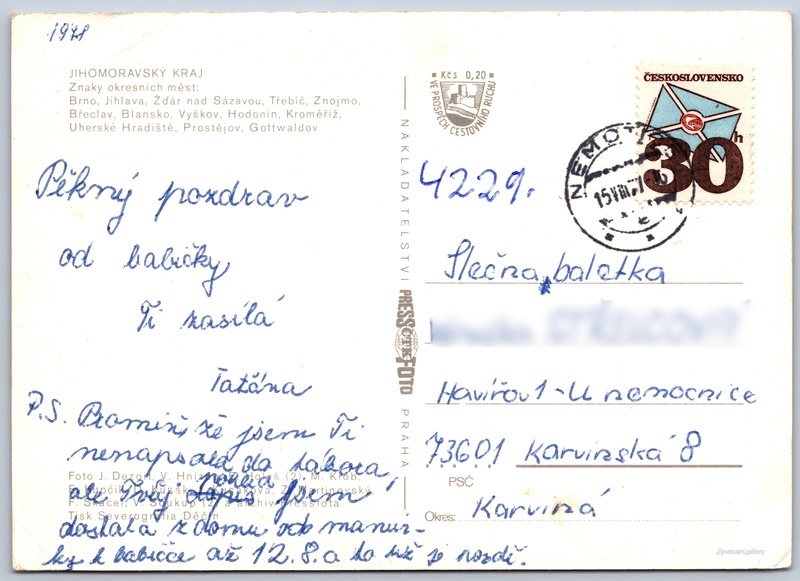 1978
JIHOMORAVSKÝ KRAJ
Znaky okresních měst:
Brno, Jihlava, Žďár nad Sázavou, Třebíč, Znojmo,
Břeclav, Blansko, Vyškov, Hodonín, Kroměříž,
Uherské Hradiště, Prostějov, Gottwaldov
Pěkný pozdrav
od babičky
Ti zasílá
Taťána
P.S. Promiň že jsem Ti
nenapsala do tábora,
pohled
ale Tvůj dopis jsem
dostala z domu od mamin-
ky k babičce až 12.8. a to už je pozdě.
Foto J. Dezort, V.
F. Skácel, V.
Tisk Severografia Děčín
NAKLADATELSTVÍ PRESSFOTO PRAHA
Kčs 0,20
VE PROSPĚCH CESTOVNÍHO RUCHU
ČESKOSLOVENSKO
30h
15.VIII.
4229.
Slečna baletka
Havířov 1 - U nemocnice
73601 Karvinská 8
PSČ
Okres: Karviná